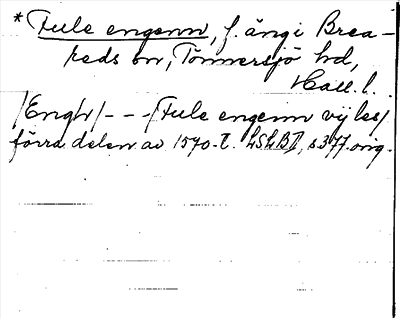 * Fule engenn, f. äng i Brea-
reds sn, Tönnersjö hd,
Hall. l.
/Engh/ - - - /Fule engenn vij les/
förra delen av 1570-t. HSH BII, s 377. orig.